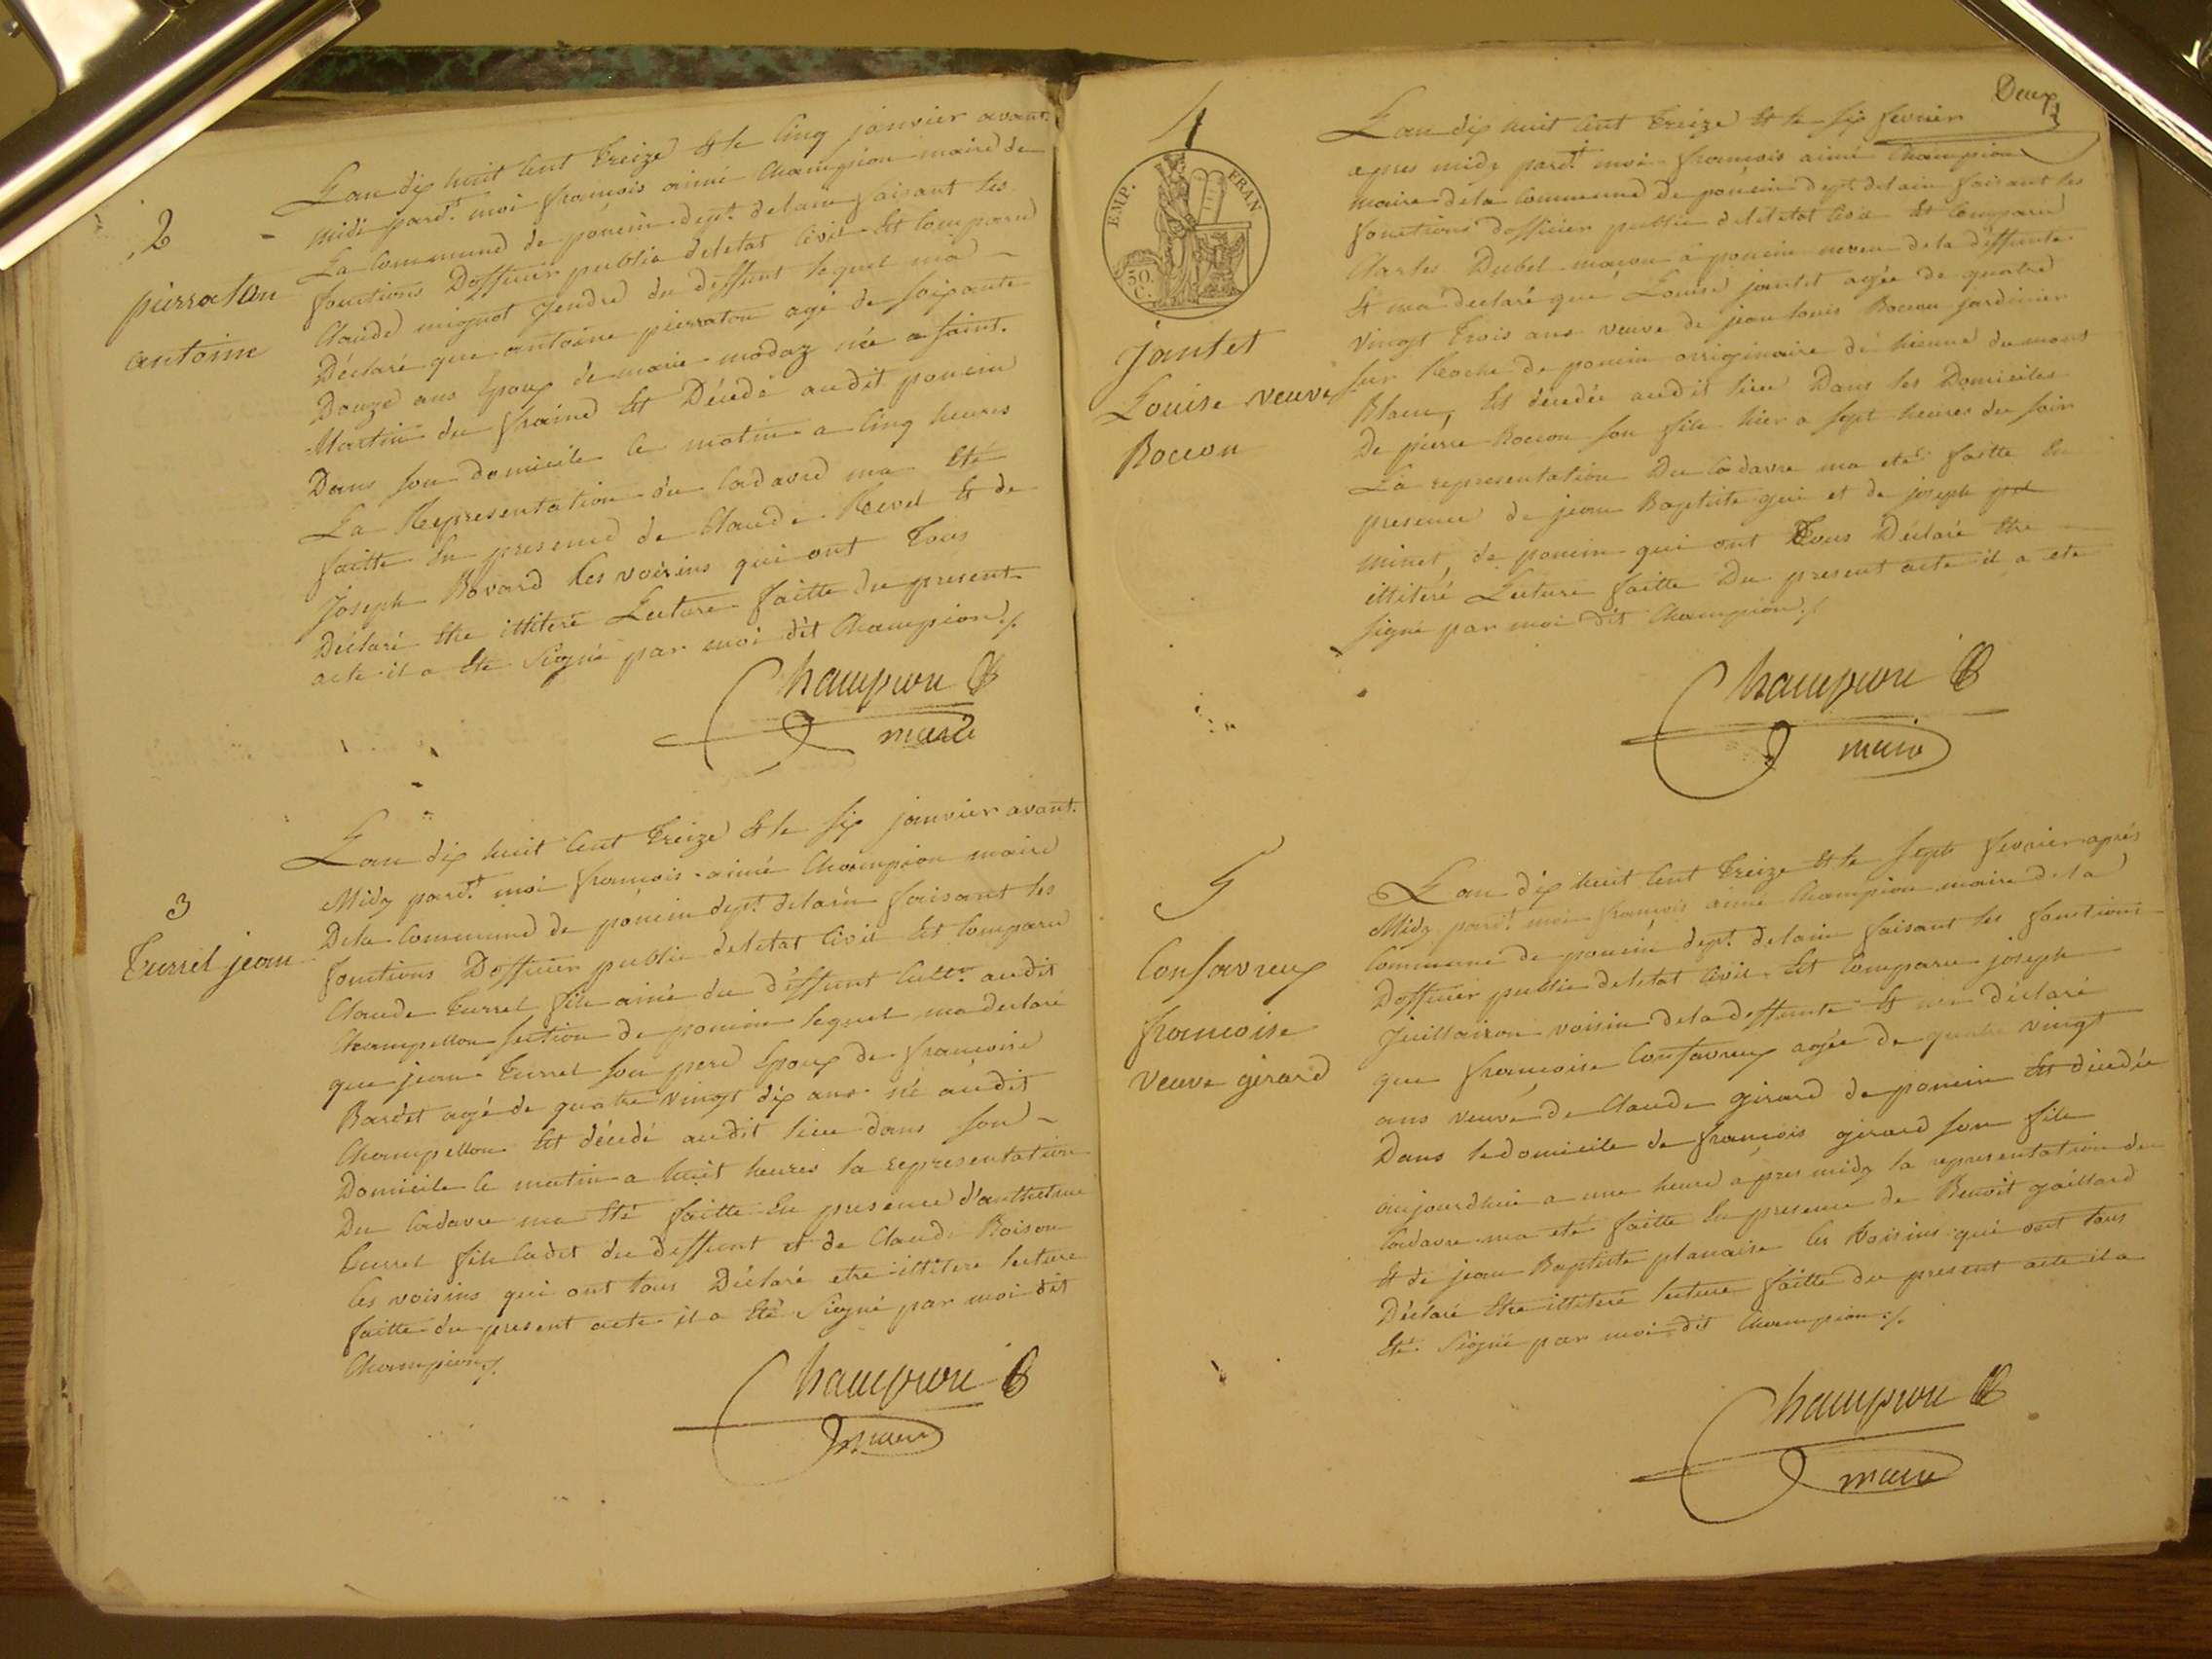 2
pierraton
antoine
Lan dix huit Cent Treize Et le Cinq janvier avant
midi pard.t moi françois aimé Champion maire de
La Commune de poncin dept. delain faisant les
fonctions Dofficier public deletat Civil Est Comparu
Claude mignot gendre du deffunt lequel ma
Déclaré que antoine pierraton agé de soixante
Douze ans Epoux de marie modaz née a saint.
Martin du fraine Est Décédé audit poncin
Dans son domicile ce matin a Cinq heures
La Representation du Cadavre ma Eté
faitte En presence de Claude Revel Et de
Joseph Bovard Ses voisins qui ont Tous
Déclaré Etre illiteré Lecture faitte du present
acte il a Eté Signé par moi dit Champion ./.
Champion
maire
3
Turrel jean
Lan dix huit Cent Treize Et le six janvier avant.
Midy pard.t moi françois aimé Champion maire
Dela Commune de poncin dept. delain faisant les
fonctions Dofficier public deletat Civil Est Comparu
Claude Turrel fils ainé du déffunt Cult.r audit
Champeillon section de poncin lequel ma declaré
que jean Turrel son pere Epoux de francoise
Bardet agé de quatre vingt dix ans né audit
Champeillon Est décédé audit lieu dans son
Domicile ce matin a huit heures la representation
Du Cadavre ma Eté faitte En presence d'anthelme
Turrel fils Cadet du deffunt et de Claude Boison
Ses voisins qui ont tous Déclaré etre illitere lecture
faitte du present acte il a Eté Signé par moi dit
Champion ./.
Champion
maire
Deux
4
EMP. FRAN
50. C.
Jantet
Louise veuve
Bocion
Lan dix huit Cent Treize Et le six fevrier
apres midy pard.t moi françois aimé Champion
maire dela Commune de poncin dept. delain faisant les
fonctions dofficier public deletat Civil Est Comparu
Charles Dubel maçon a poncin neveu dela déffunte
Et ma déclaré que Louise jantet agée de quatre
vingt Trois ans veuve de jean louis Bocion jardinier
sur Roche de poncin originaire de hienne du mont
Blanc, Est décédée audit lieu Dans les Domiciles
De pierre Bocion son fils hier a sept heures du soir
La representation Du Cadavre ma eté faitte En
presence de jean Baptiste gui et de joseph
minet, de poncin qui ont Tous Déclaré Etre
illiteré Lecture faitte Du present acte il a eté
signé par moi dit Champion ./.
Champion
maire
5
Confavreux
francoise
veuve girard
Lan dix huit Cent Treize Et le sept fevrier après
Midy pard.t moi françois aimé Champion maire dela
Commune de poncin dept. delain faisant les fonctions
Dofficier public deletat Civil Est Comparu joseph
Juillairon voisin dela deffunte Et ma déclaré
que francoise Confavreux agée de quatre vingt
ans veuve de Claude girard de poncin Est décédée
Dans le domicile de françois girard son fils
aujourdhui a une heure apres midy la representation du
Cadavre ma eté faitte En presence de Benoit gaillard
Et de jean Baptiste planaise Ses voisins qui ont tous
Déclaré Etre illiteré lecture faitte du present acte il a
Eté Signé par moi dit Champion ./.
Champion
maire